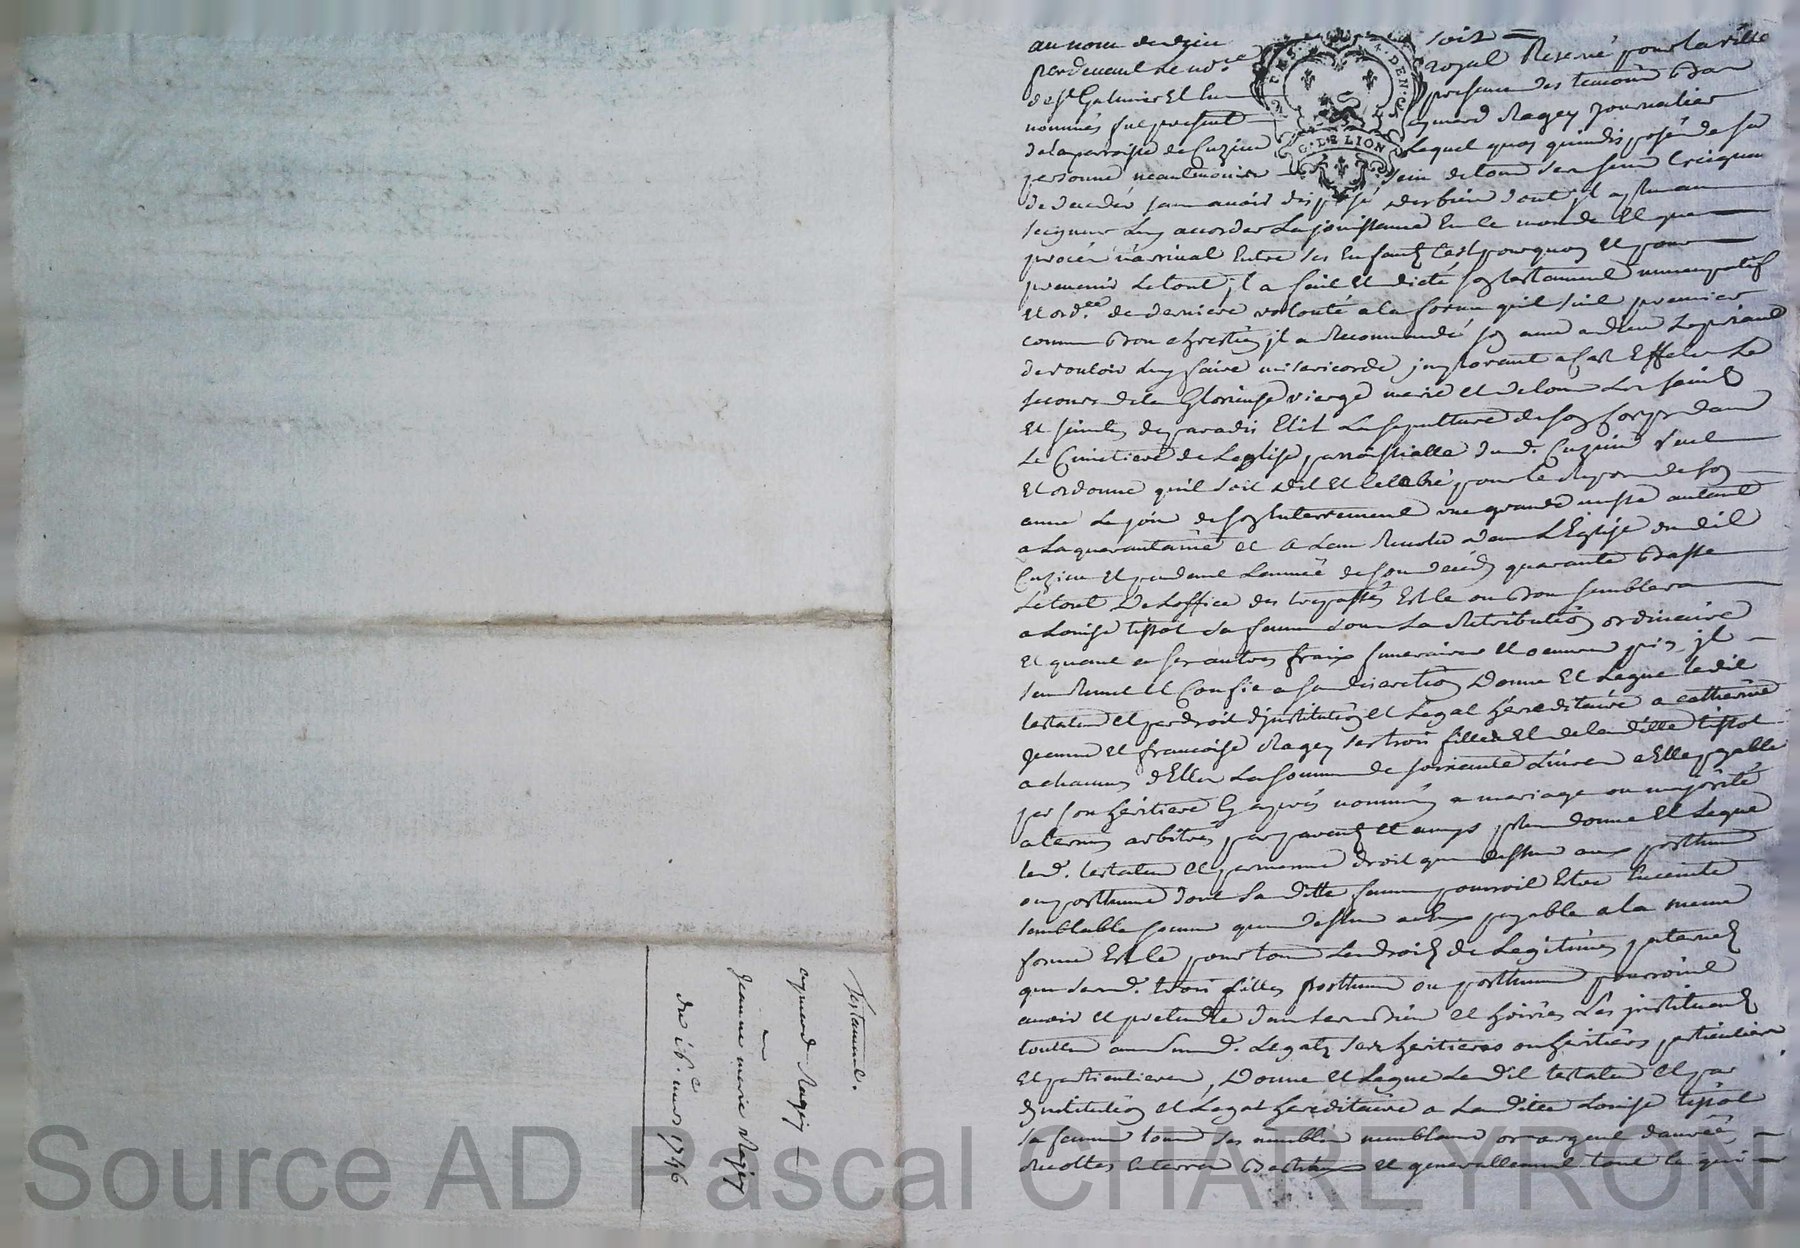 au nom de dieu soit
pardevant le no.re royal Reservé pour la ville
de st Galmier Et En presence des temoins Bas
nommés fut present aymard Ragey Journalier
de la parroisse de Cuzieu Lequel quoy quindisposé de sa
personne neantmoins sain de tous ses sens Craignant
de deceder sans avoir disposé des bien dont il a plu au
seigneur Luy accorder La jouissance En ce monde Et que
procés n'arrivat Entre ses Enfants C'est pourquoy Et pour
prevenir Le tout, il a fait Et dicté son testament nuncupatif
Et ord.ce de derniere volonté a la forme quil suit premier
comme Bon chrestien il a Recommandé son ame a dieu Le priant
de vouloir luy faire misericorde, implorant a Cet Effet Le
secours de la Glorieuse vierge marie et de tous Les saints
Et saintes de paradis Elit La sepulture de son Corps dans
Le Cimetiere de Leglise parroissialle dud. Cuzieu veut
Et ordonne quil soit dit Et Celebré pour le Repos de son
ame Le jour de son Enterrement une grande messe autant
a La quarantaine et a L'an Revolu dans L'Eglise du dit
Cuzieu Et pendant L'année de son deceds quarante Basse
Le tout De Loffice des trepassés Et Le ou Bon semblera
a Louise tissot sa femme dont La Retribution ordinaire
Et quant a ses autres fraix funeraires Et oeuvres pies, il
s'en Remet Et Confie a sa discretion Donne Et Legue Ledit
testateur et par droit d'institution et Legat hereditaire a catherine
jeanne et francoise Ragey ses trois filles Et de la ditte tissot
a chacune d'Elles La somme de soixante Livres a Elle payable
par son héritiere Cy aprés nommée a mariage ou majorité
a termes arbitrés par parents et amys, plus donne Et Legue
led. testateur et par meme droit que dessus aux posthume
ou posthume dont sa ditte femme pourroit Estre Enceinte
semblable somme que dessus a Eux payable a la meme
forme Et Le pour tous Les droits de Legitimes paternels
que sesd. trois filles posthume ou posthume pourroient
avoir et pretendre dans ses Bien et hoiries Les instituant
toutes au sud. Legat ses heritieres ou heritiers particuliers
et particulieres, Donne et Legue Le dit testateur et par
institution et Legat hereditaire a La ditte Louise tissot
sa femme tous ses meubles meublans or argent danrées
Recoltes En terre Bestiaux et generallement tout ce qui
testament.
aymard Ragey
a
Jeanne marie Ragey
du 16.e mars 1746
G. DE LION
Source AD Pascal CHAREYRON